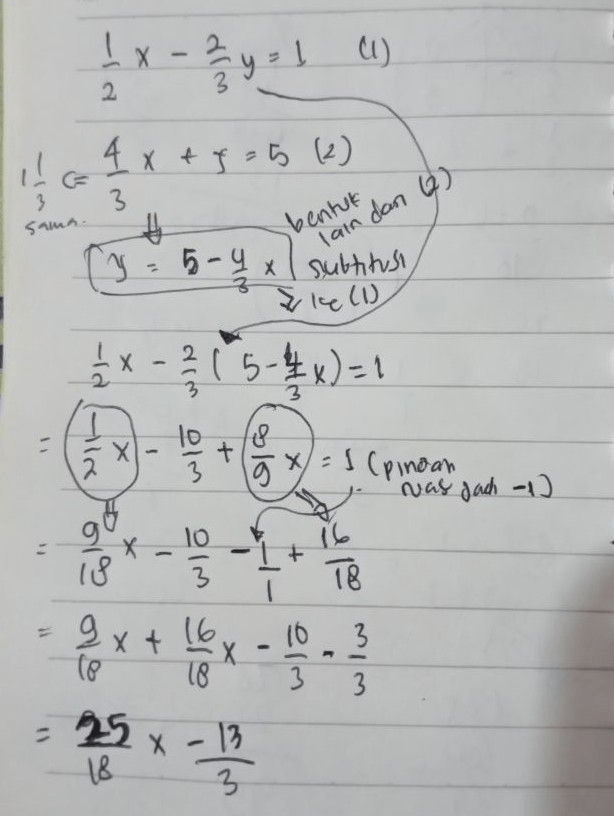 1/2 x - 2/3 y = 1 (1)
1 1/3 <= 4/3 x + y = 5 (2)
sama.
bentuk
lain dari (2)
y = 5 - 4/3 x
subtitusi
ke (1)
1/2 x - 2/3 ( 5 - 4/3 x) = 1
= 1/2 x - 10/3 + 8/9 x = 1 (pindah
ruas jadi -1)
= 9/18 x - 10/3 - 1/1 + 16/18
= 9/18 x + 16/18 x - 10/3 - 3/3
= 25/18 x - 13/3